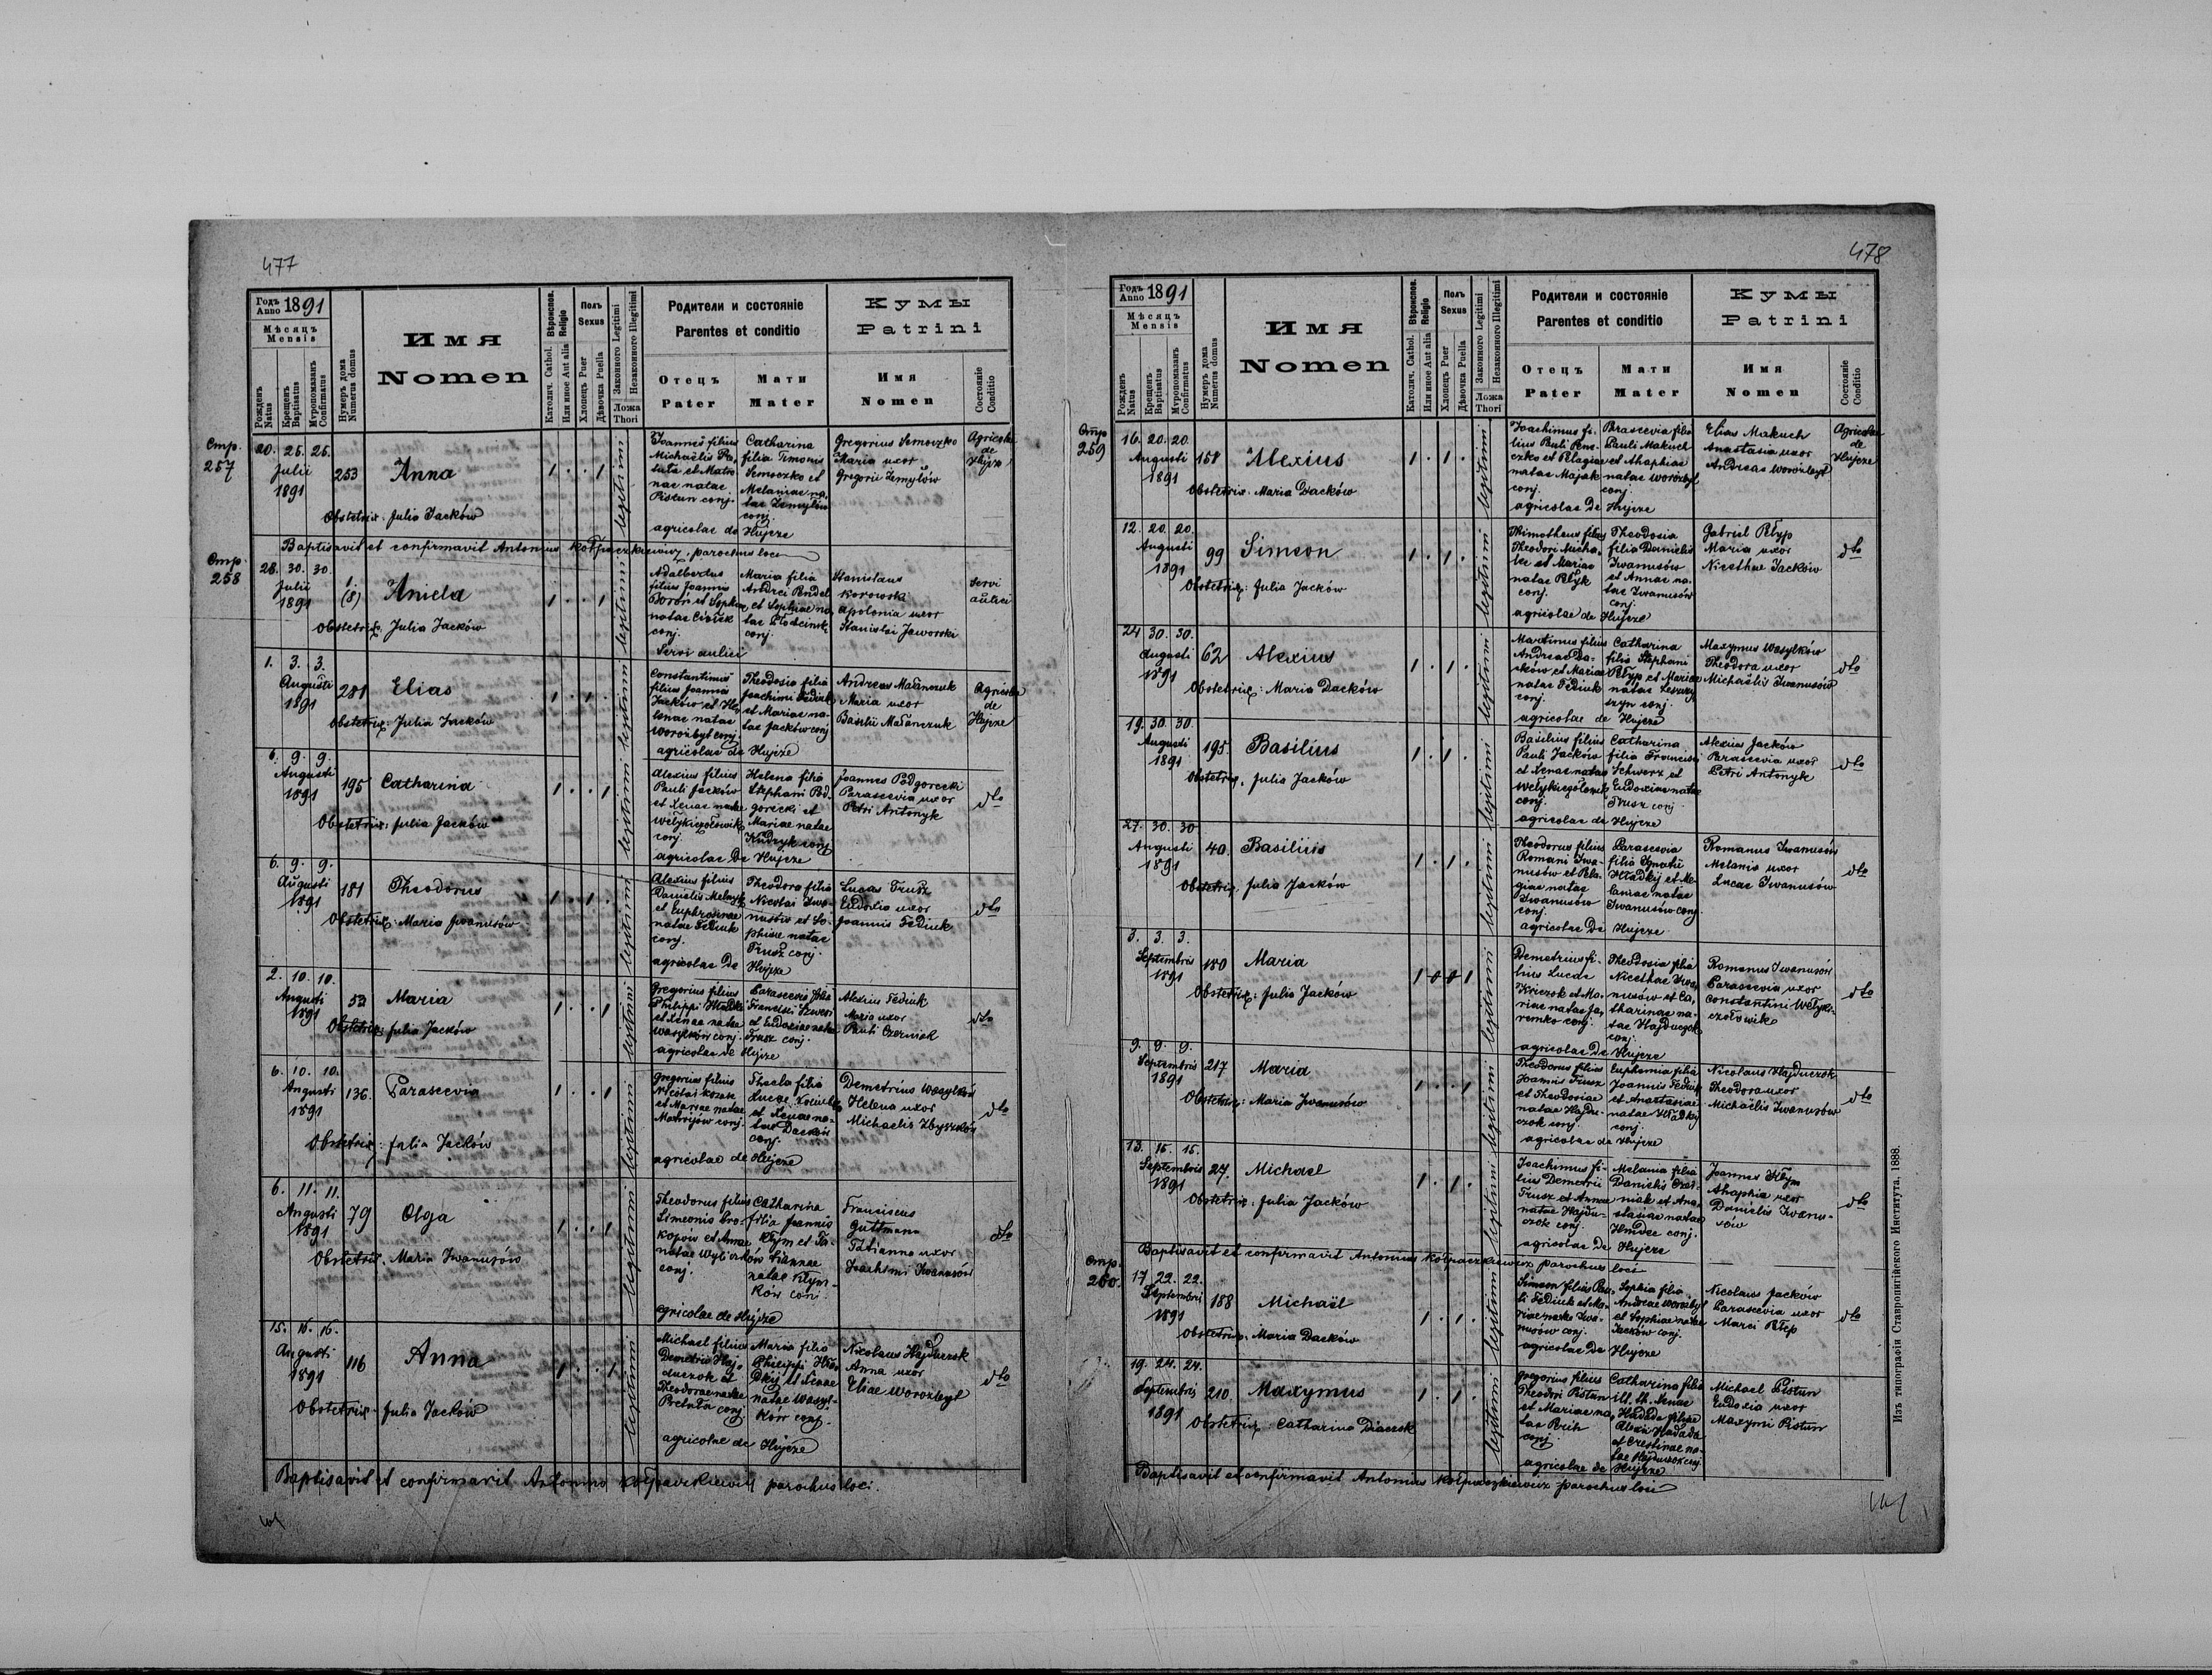 477
Годъ Anno 1891
Мѣсяцъ Mensis
Рожденъ Natus
Крещенъ Baptisatus
Мѵропомазанъ Confirmatus
Нумеръ дома Numerus domus
Имя
Nomen
Вѣроиспов. Religio
Католич. Cathol.
Или иное Aut alia
Полъ Sexus
Хлопецъ Puer
Дѣвочка Puella
Законного Legitimi
Незаконного Illegitimi
Ложа Thori
Родители и состояніе
Parentes et conditio
Отецъ Pater
Мати Mater
Кумы
Patrini
Имя Nomen
Состояніе Conditio
Стр. 257
20. 25. 25.
Julii
1891
253
Anna
Obstetrix: Julia Jacków
legitimi
Joannes filius
Michaelis
natae
Pistun conj.
Catharina
filia Timonis
Semoczko et
Melaniae na-
tae Zemylów
conj.
agricolae de Hujcze
Gregorius Semoczko
Maria uxor
Gregorii Zemylów
Agricolae
de
Hujcze
Baptisavit et confirmavit Antonius Kołpaczkiewicz, parochus loci
Стр. 258
28. 30. 30.
Julii
1891
1 (8)
Aniela
Obstetrix: Julia Jacków
legitimi
Adalbertus
filius Joannis
Boron et Sophiae
natae
conj.
Maria filia
Andrei
et Sophiae na-
tae
conj.
Servi aulici
Stanislaus
Korowska
Apolonia uxor
Stanislai Jaworski
Servi
aulici
1. 3. 3.
Augusti
1891
281
Elias
Obstetrix: Julia Jacków
legitimi
Constantinus
filius Joannis
Jacków et He-
lenae natae
Worozbyt conj.
Theodosia filia
Joachimi Fediuk
et Mariae na-
tae Jacków conj
agricolae de Hujcze
Andreas Małanczuk
Maria uxor
Basilii Małanczuk
Agricolae
de
Hujcze
6. 9. 9.
Augusti
1891
195
Catharina
Obstetrix: Julia Jacków
legitimi
Alexius filius
Pauli Jacków
et Xenae natae
Wełykiczołowik
conj.
Helena filia
Stephani Pod-
gorecki et
Mariae natae
Kudryk conj
agricolae de Hujcze
Joannes Podgorecki
Parascevia uxor
Petri Antonyk
dto
6. 9. 9.
Augusti
1891
181
Theodorus
Obstetrix: Maria Iwanusów
legitimi
Alexius filius
Danielis Melnyk
et Euphrosinae
natae Fediuk
conj.
Theodora filia
Nicolai Iwa-
nusów et So-
phiae natae
Trusz conj.
agricolae de Hujcze
Lucas Trusz
Eudoxia uxor
Joannis Fediuk
dto
2. 10. 10.
Augusti
1891
Maria
Obstetrix: Julia Jacków
legitimi
Gregorius filius
Philippi
et Xenae natae
Wasylków conj.
Parascevia filia
Francisci
et Eudoxiae natae
Trusz conj.
agricolae de Hujcze
Alexius Fediuk
Maria uxor
Pauli Czerniak
dto
6. 10. 10.
Augusti
1891
136.
Parascevia
Obstetrix: Julia Jacków
legitimi
Gregorius filius
Nicolai Kozak
et Mariae natae
Matwijów conj.
Thecla filia
Lucae
et Xenae na-
tae Dacków
conj.
agricolae de Hujcze
Demetrius Wasylków
Helena uxor
Michaelis Zbyszków
dto
6. 11. 11.
Augusti
1891
79
Olga
Obstetrix: Maria Iwanusów
legitimi
Theodorus filius
Simeonis Pro-
kopow et Annae
natae
conj.
Catharina
filia Joannis
Kłym et Ta-
tiannae
natae Kłym-
ków conj.
agricolae de Hujcze
Franciscus
Guttmann
Tatianna uxor
Joachimi Iwanusów
dto
15. 16. 16.
Augusti
1891
116
Anna
Obstetrix: Julia Jacków
legitimi
Michael filius
Demetrii Haj-
duczok et
Theodorae natae
conj.
Maria filia
Philippi Hła-
dkij et Xenae
natae Wasyl-
ków conj.
agricolae de Hujcze
Nicolaus Hajduczok
Anna uxor
Eliae Worozbyt
dto
Baptisavit et confirmavit Antonius Kołpaczkiewicz parochus loci.
478
Годъ Anno 1891
Мѣсяцъ Mensis
Рожденъ Natus
Крещенъ Baptisatus
Мѵропомазанъ Confirmatus
Нумеръ дома Numerus domus
Имя
Nomen
Вѣроиспов. Religio
Католич. Cathol.
Или иное Aut alia
Полъ Sexus
Хлопецъ Puer
Дѣвочка Puella
Законного Legitimi
Незаконного Illegitimi
Ложа Thori
Родители и состояніе
Parentes et conditio
Отецъ Pater
Мати Mater
Кумы
Patrini
Имя Nomen
Состояніе Conditio
Стр. 259
16. 20. 20.
Augusti
1891
Alexius
Obstetrix: Maria Dacków
legitimi
Joachimus fi-
lius Pauli
et Pelagiae
natae Majak
conj.
Parascevia filia
Pauli Makuch
et Ahaphiae
natae Worozbyt
conj.
agricolae de Hujcze
Elias Makuch
Anastasia uxor
Andreae Worozbyt
Agricolae
de
Hujcze
12. 20. 20.
Augusti
1891
99
Simeon
Obstetrix: Julia Jacków
legitimi
Thimotheus filius
Theodori
et Mariae
natae
conj.
Theodosia
filia Danielis
Iwanusów
et Annae na-
tae Iwanusów
conj.
agricolae de Hujcze
Gabriel Płyp
Maria uxor
Nicethae Jacków
dto
24 30. 30.
Augusti
1891
62
Alexius
Obstetrix: Maria Dacków
legitimi
Martinus filius
Andreae Da-
cków et Mariae
natae Fediuk
conj.
Catharina
filia Stephani
Płyp et Mariae
natae
conj.
agricolae de Hujcze
Maxymus Wasylków
Theodora uxor
Michaelis Iwanusów
dto
19. 30. 30.
Augusti
1891
195.
Basilius
Obstetrix: Julia Jacków
legitimi
Basilius filius
Pauli Jacków
et Xenae natae
conj.
Catharina
filia Francisci
Schwerz et
Eudoxiae natae
Trusz conj.
agricolae de Hujcze
Alexius Jacków
Parascevia uxor
Petri Antonyk
dto
27. 30. 30
Augusti
1891
40.
Basilius
Obstetrix: Julia Jacków
legitimi
Theodorus filius
Romani Iwa-
nusów et Pela-
giae natae
Iwanusów
conj.
Parascevia
filia Ignatii
Hładkij et Me-
laniae natae
Iwanusów conj.
agricolae de Hujcze
Romanus Iwanusów
Melania uxor
Lucae Iwanusów
dto
3. 3. 3.
Septembris
1891
180
Maria
Obstetrix: Julia Jacków
legitimi
Demetrius fi-
lius Lucae
et Ma-
riae natae Ja-
remko conj.
Theodosia filia
Nicethae Iwa-
nusów et Ca-
tharinae na-
tae Hajduczok
conj.
agricolae de Hujcze
Romanus Iwanusów
Parascevia uxor
Constantini Wełyki-
czołowik
dto
9. 9. 9.
Septembris
1891
217
Maria
Obstetrix: Maria Iwanusów
legitimi
Theodorus filius
Joannis Trusz
et Theodosiae
natae Hajdu-
czok conj.
Euphemia filia
Joannis Fediuk
et Anastasiae
natae Hładkij
conj.
agricolae de Hujcze
Nicolaus Hajduczok
Theodora uxor
Michaelis Iwanusów
dto
13. 15. 15.
Septembris
1891
27.
Michael
Obstetrix: Julia Jacków
legitimi
Joachimus fi-
lius Demetrii
Trusz et Annae
natae Hajdu-
czok conj.
Melania filia
Danielis Czer-
niak et Ana-
stasiae natae
conj.
agricolae de Hujcze
Joannes Kłym
Ahaphia uxor
Danielis Iwanu-
sów
dto
Baptisavit et confirmavit Antonius Kołpaczkiewicz parochus loci
Стр. 260.
17. 22. 22.
Septembri
1891
188
Michaël
Obstetrix: Maria Dacków
legitimi
Simeon filius Pau-
li Fediuk et Ma-
riae natae Iwa-
nusów conj.
Sophia filia
Andreae Worozbyt
et Sophiae natae
Jacków conj.
agricolae de Hujcze
Nicolaus Jacków
Parascevia uxor
Marci
dto
19. 24. 24.
Septembris
1891
210.
Maxymus
Obstetrix: Catharina Diaczok
legitimi
Gregorius filius
Theodori Pistun
et Mariae na-
tae
conj.
Catharina filia
ill. th. Xenae
Hadada filiae
Alexii Hadada
et Crestinae na-
tae Hajduczok conj.
agricolae de Hujcze
Michael Pistun
Eudoxia uxor
Maxymi Pistun
Baptisavit et confirmavit Antonius Kołpaczkiewicz parochus loci
Изъ типографіи Ставропигійского Института, 1888.